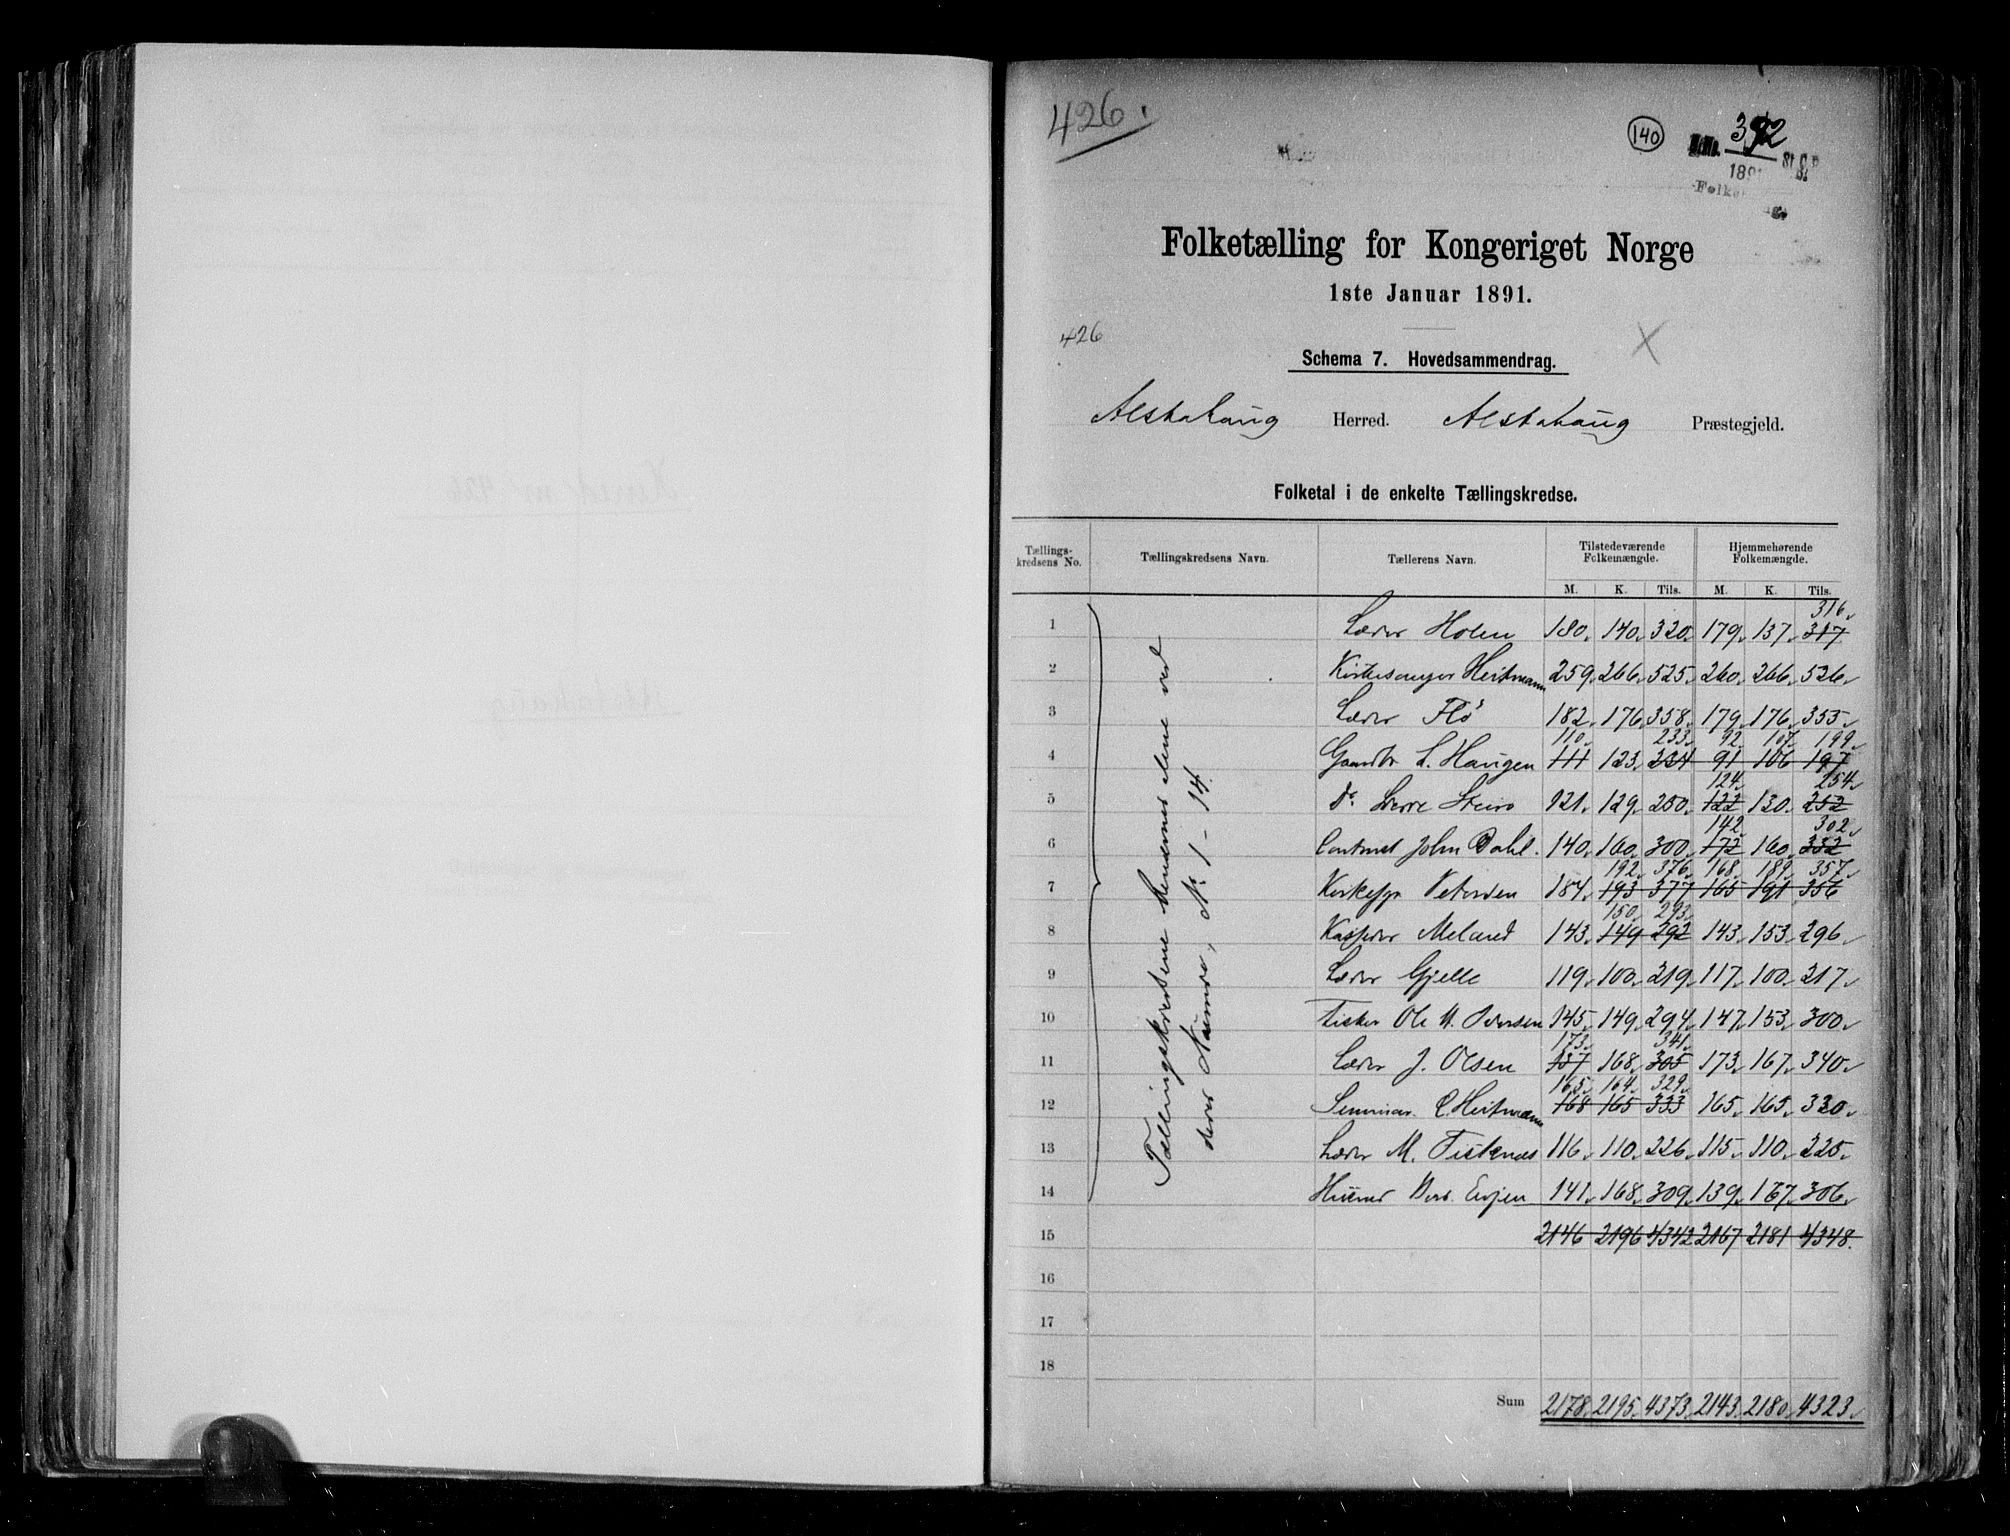 426.
140
392
189
Folke
Folketælling for Kongeriget Norge
1ste Januar 1891.
426
X
Schema 7. Hovedsammendrag.
Alstahaug Herred. Alstahaug Præstegjeld.
Folketal i de enkelte Tællingskredse.
Tællings-kredsens No. Tællingskredsens Navn. Tællerens Navn. Tilstedeværende Folkemængde. Hjemmehørende Folkemængde.
M. K. Tils. M. K. Tils.
Tællingskredsene benævnes alene ved
deres Numre, No 1 - 14.
316
1 Lærer Holen 180 140 320 179 137 317
2 Kirkesanger Heitmann 259 266 525 260 266 526
3 Lærer Flö 182 176 358 179 176 355
110 233 92 107 199
4 Gaardbr L. Haugen 111 123 234 91 106 197
124 254
5 Do 121 129 250 122 130 252
142 302
6 John Dahl. 140 160 300 172 160 332
192 376 168 189 357
7 Kirkesgr Petersen 184 193 377 165 191 356
150 293
8 Kasper Meland 143 149 292 143 153 296
9 Lærer Gjelle 119 100 219 117 100 217
10 Fisker Ole M. Iversen 145 149 294 147 153 300
173 341
11 Lærer J. Olsen 137 168 305 173 167 340
165 164 329
12 Seminar. C. Heitmann 168 165 333 165 165 330
13 Lærer M. Fiskenæs 116 110 226 115 110 225
14 Husmd Evjen 141 168 309 139 167 306
15 2146 2196 4342 2167 2181 4348.
16
17
18
Sum 2178 2195 4373 2143 2180 4323